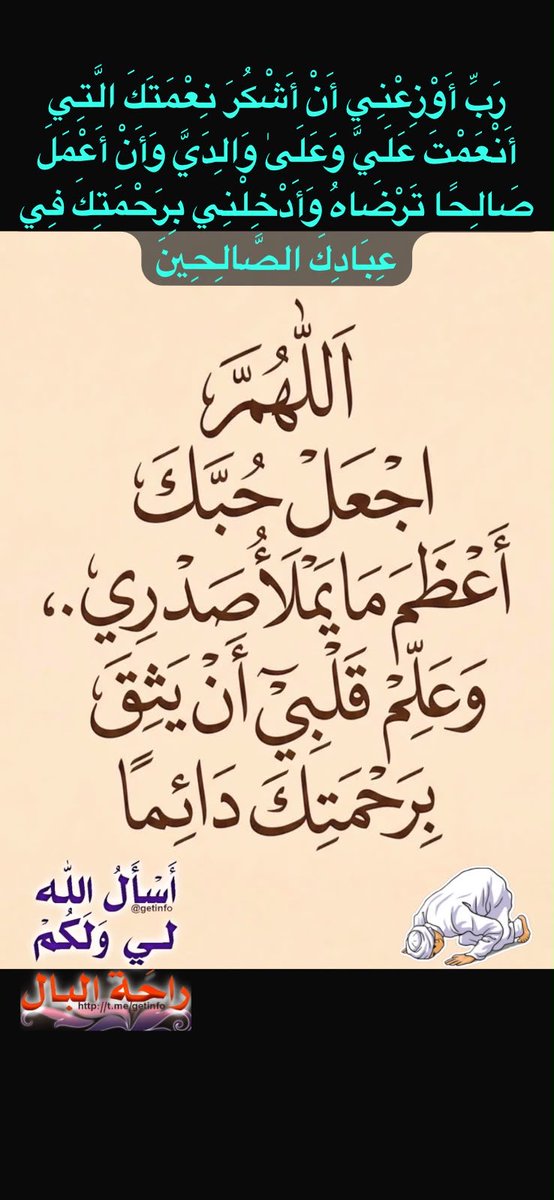 رَبِّ أَوْزِعْنِي أَنْ أَشْكُرَ نِعْمَتَكَ الَّتِي
أَنْعَمْتَ عَلَيَّ وَعَلَىٰ وَالِدَيَّ وَأَنْ أَعْمَلَ
صَالِحًا تَرْضَاهُ وَأَدْخِلْنِي بِرَحْمَتِكَ فِي
عِبَادِكَ الصَّالِحِينَ
اَللّٰهُمَّ
اجْعَلْ حُبَّكَ
أَعْظَمَ مَا يَمْلَأُ صَدْرِي .،
وَعَلِّمْ قَلْبِيٓ أَنْ يَثِقَ
بِرَحْمَتِكَ دَائِمًا
أَسْأَلُ اللّٰه
@getinfo
لي وَلَكُمْ
راحَة البال
http://t.me/getinfo